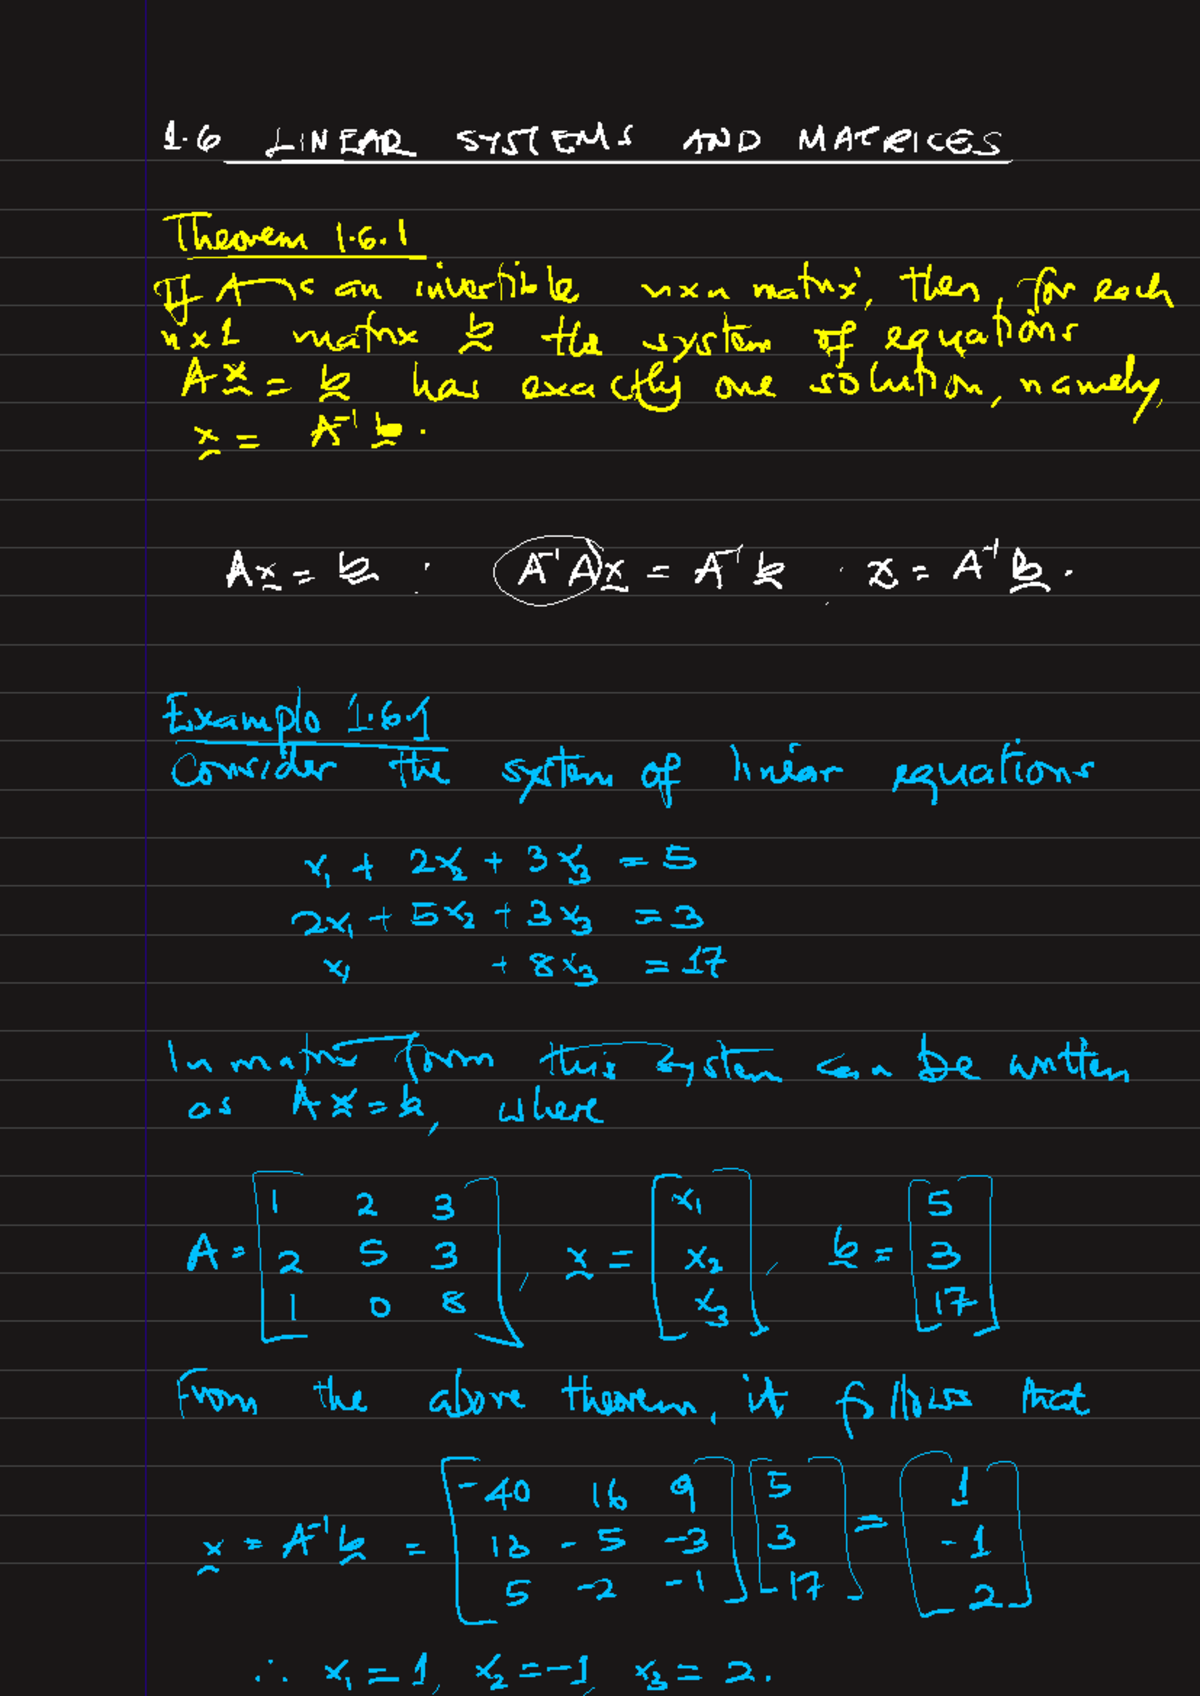 1.6 LINEAR SYSTEMS AND MATRICES
Theorem 1.6.1
If A is an invertible n×n matrix, then, for each
n×1 matrix b the system of equations
Ax = b has exactly one solution, namely,
x = A⁻¹b.
Ax = b : A⁻¹Ax = A⁻¹b . x = A⁻¹b.
Example 1.6.1
Consider the system of linear equations
x₁ + 2x₂ + 3x₃ = 5
2x₁ + 5x₂ + 3x₃ = 3
x₁ + 8x₃ = 17
In matrix form this system can be written
as Ax = b, where
A = [1 2 3; 2 5 3; 1 0 8], x = [x₁; x₂; x₃], b = [5; 3; 17]
From the above theorem, it follows that
x = A⁻¹b = [-40 16 9; 13 -5 -3; 5 -2 -1] [5; 3; 17] = [1; -1; 2]
∴ x₁ = 1, x₂ = -1, x₃ = 2.